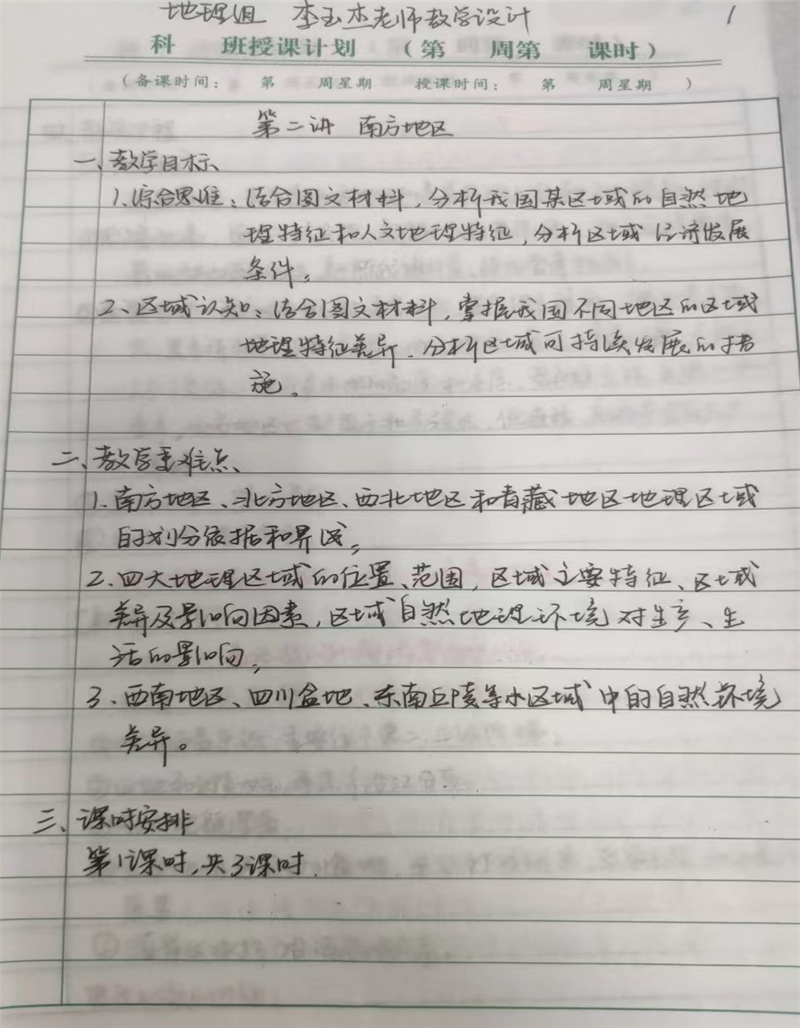 地理组 李玉杰老师教学设计 1
科 班授课计划 （第 周第 课时）
（备课时间： 第 周星期 授课时间： 第 周星期 ）
第二讲 南方地区
一、教学目标
1.综合思维：结合图文材料，分析我国某区域的自然地
理特征和人文地理特征，分析区域经济发展
条件。
2、区域认知：结合图文材料，掌握我国不同地区的区域
地理特征差异．分析区域可持续发展的措
施。
二、教学重难点
1.南方地区、北方地区、西北地区和青藏地区地理区域
的划分依据和界线。
2.四大地理区域的位置、范围，区域主要特征、区域
差异及影响因素，区域自然地理环境对生产、生
活的影响。
3、西南地区、四川盆地、东南丘陵等小区域中的自然环境
差异。
三、课时安排
第1课时，共3课时．